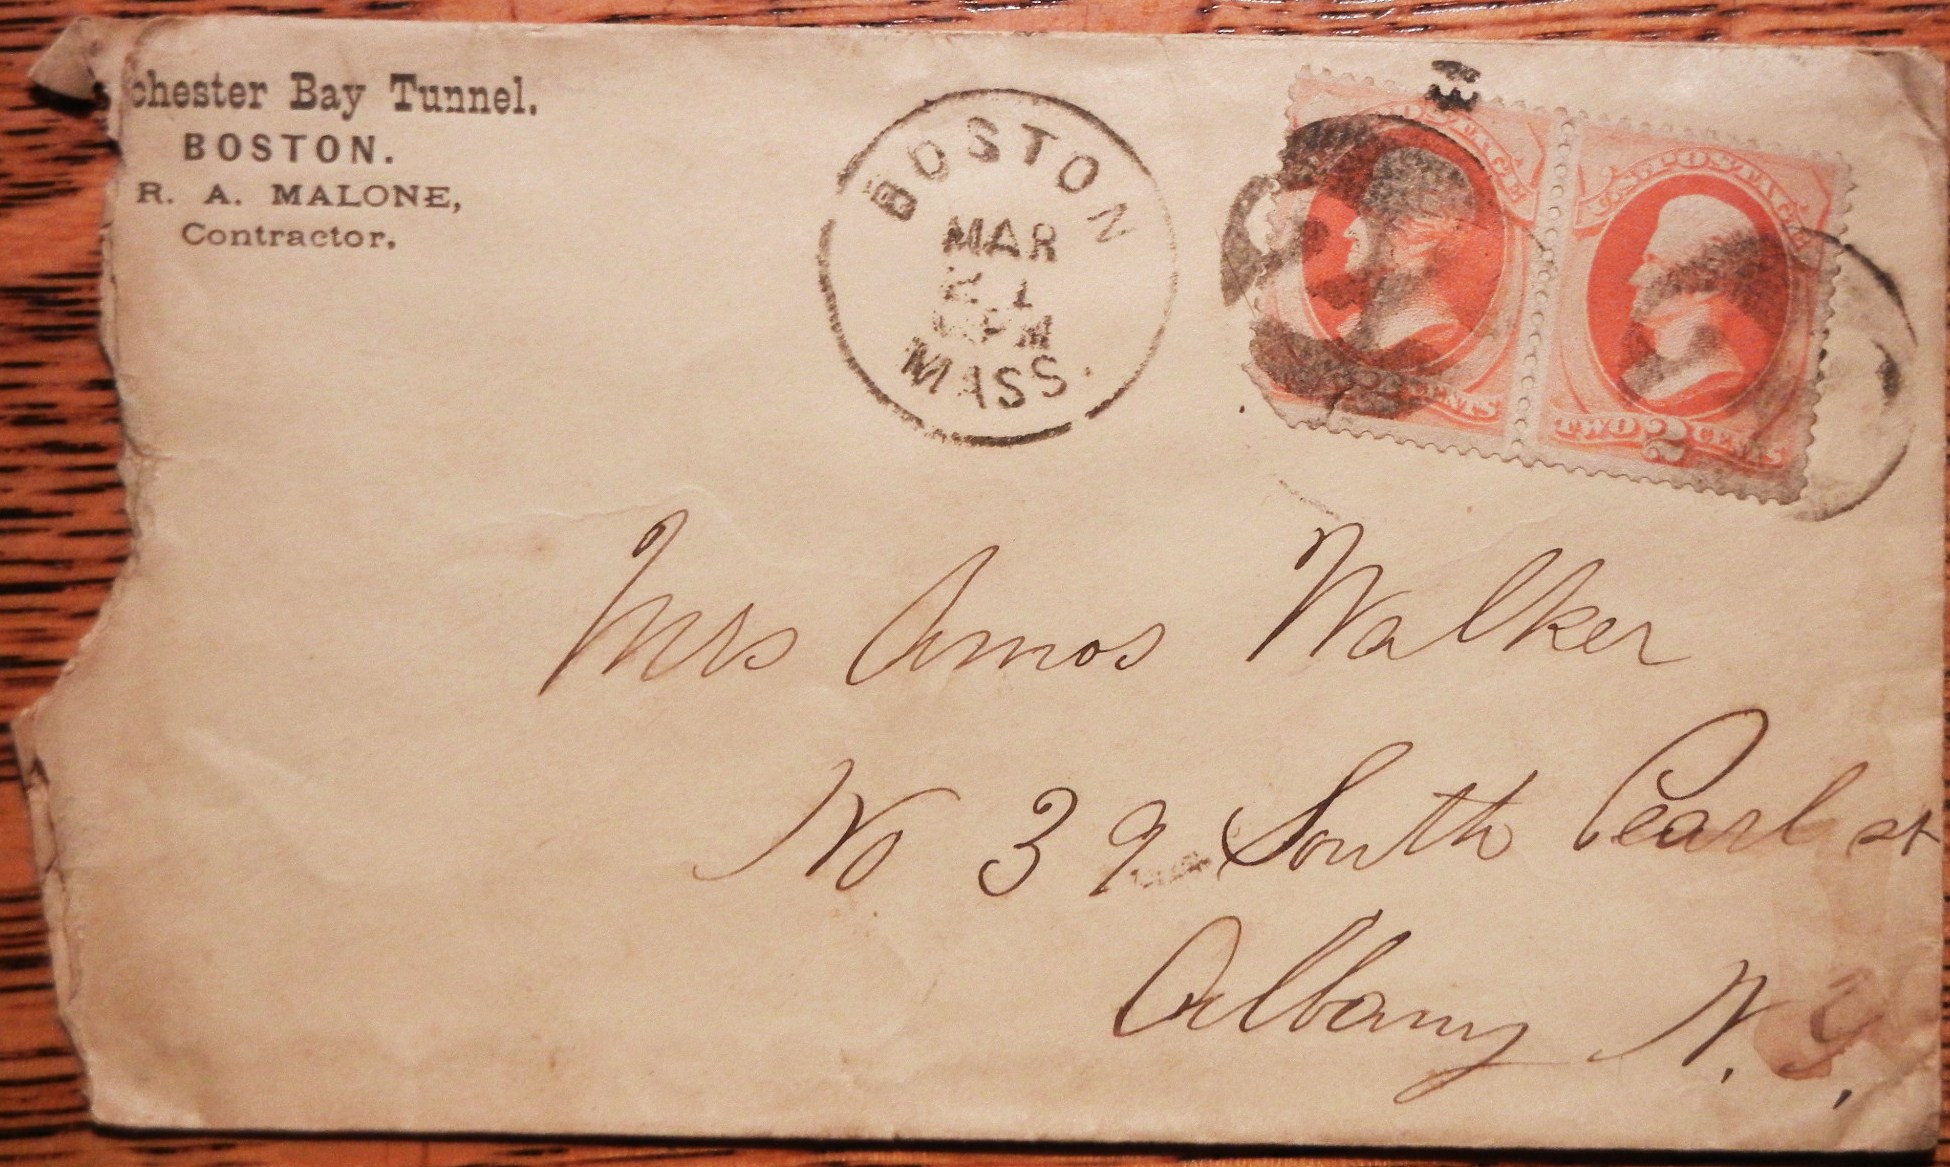 chester Bay Tunnel.
BOSTON.
R. A. MALONE,
Contractor.
BOSTON
MAR
21
PM
MASS.
U.S. POSTAGE
TWO 2 CENTS
Mrs Amos Walker
No 39 South Pearl st
Albany N. Y.